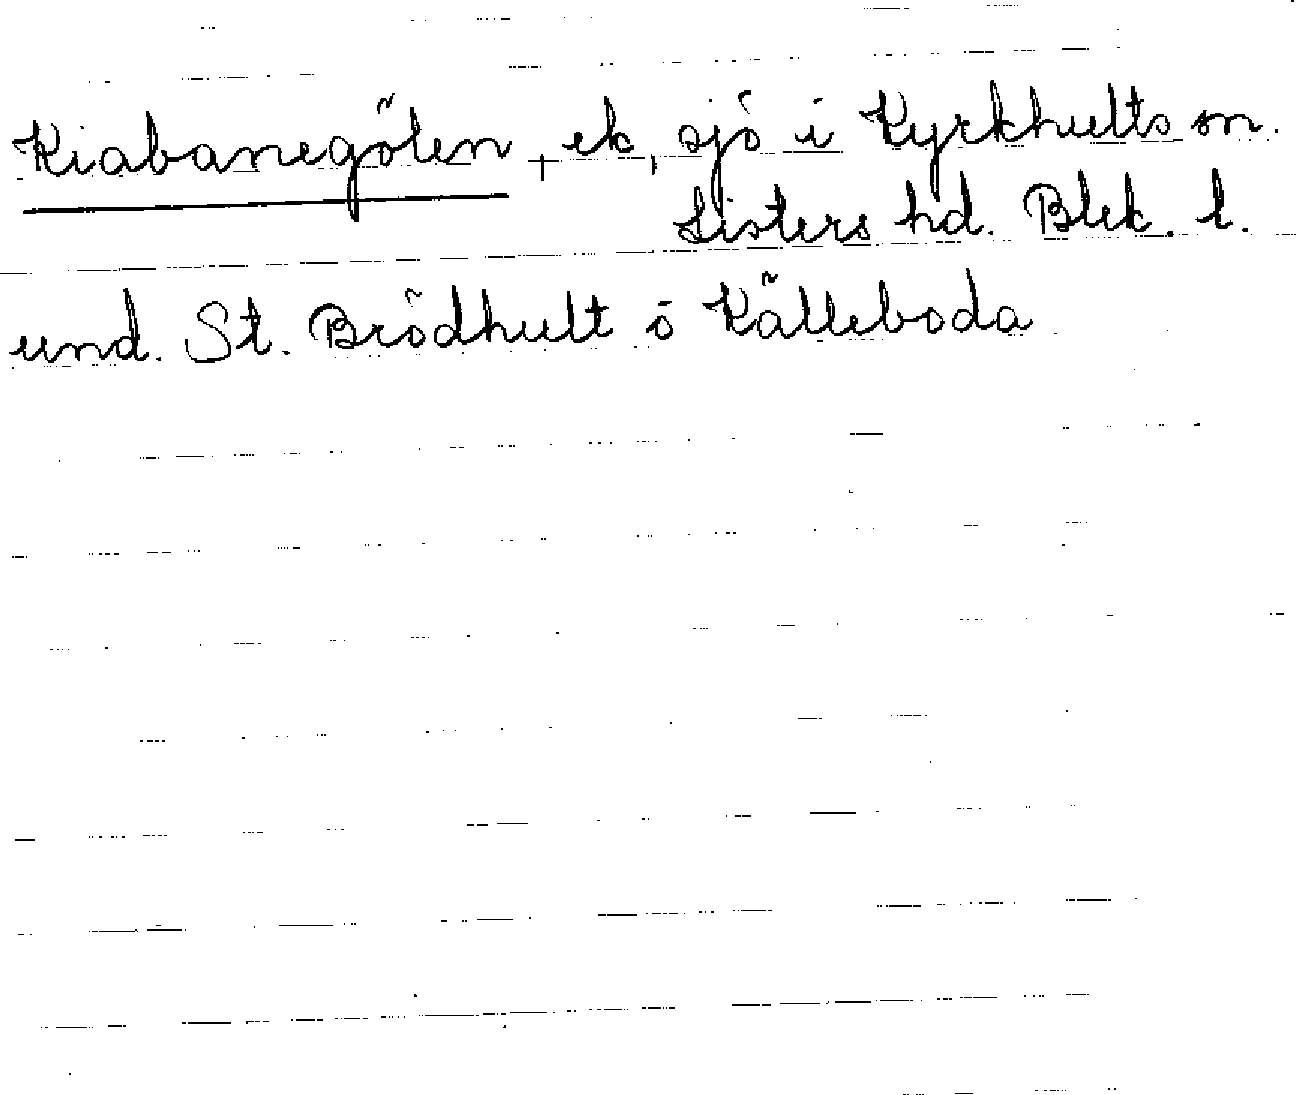 Kiabanegölen, ek, sjö i Kyrkhults sn.
Listers hd. Blek. l.
und. St. Brödhult ö Källeboda